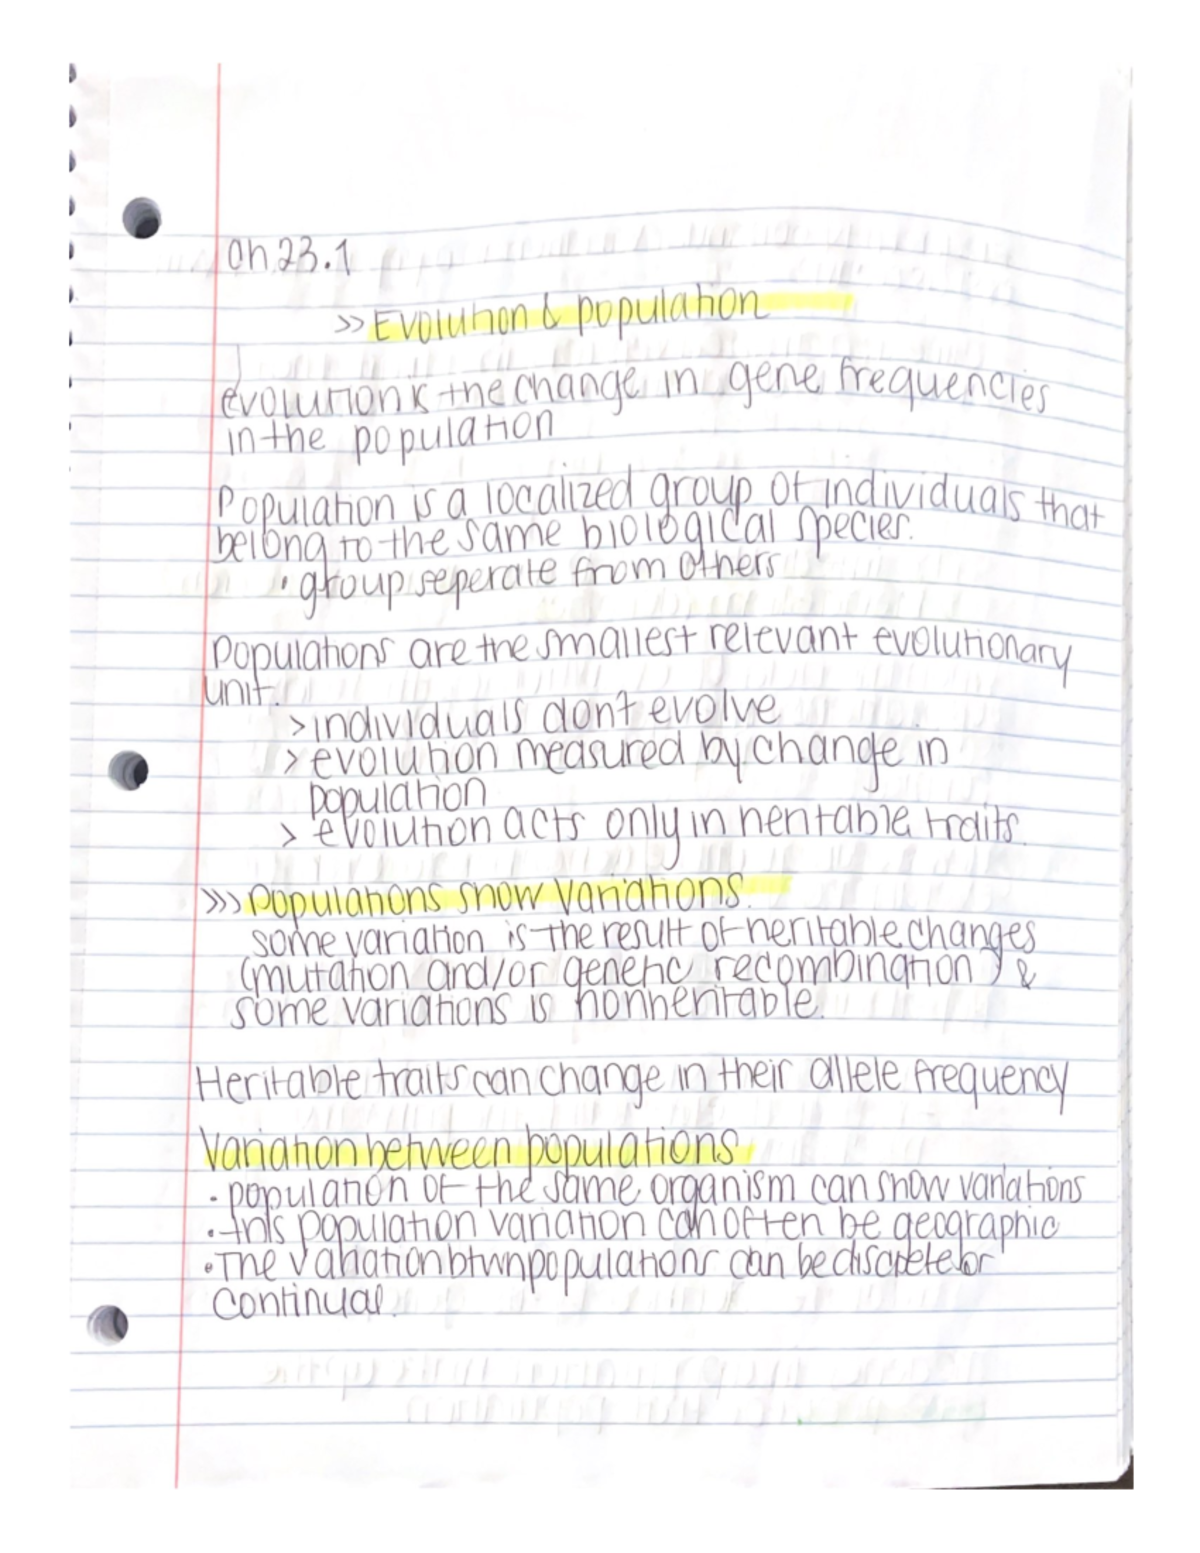 Ch 23.1
>> Evolution & population
evolution is the change in gene frequencies
in the population
Population is a localized group of individuals that
belong to the same biological species.
• group seperate from others
Populations are the smallest relevant evolutionary
unit.
> individuals don't evolve
> evolution measured by change in
population
> evolution acts only in heritable traits.
>>> Populations show variations.
some variation is the result of heritable changes
(mutation and/or genetic recombination) &
some variations is nonheritable.
Heritable traits can change in their allele frequency
Variation between populations
• population of the same organism can show variations
• this population variation can often be geographic
• The variation btwn populations can be discrete or
continual.